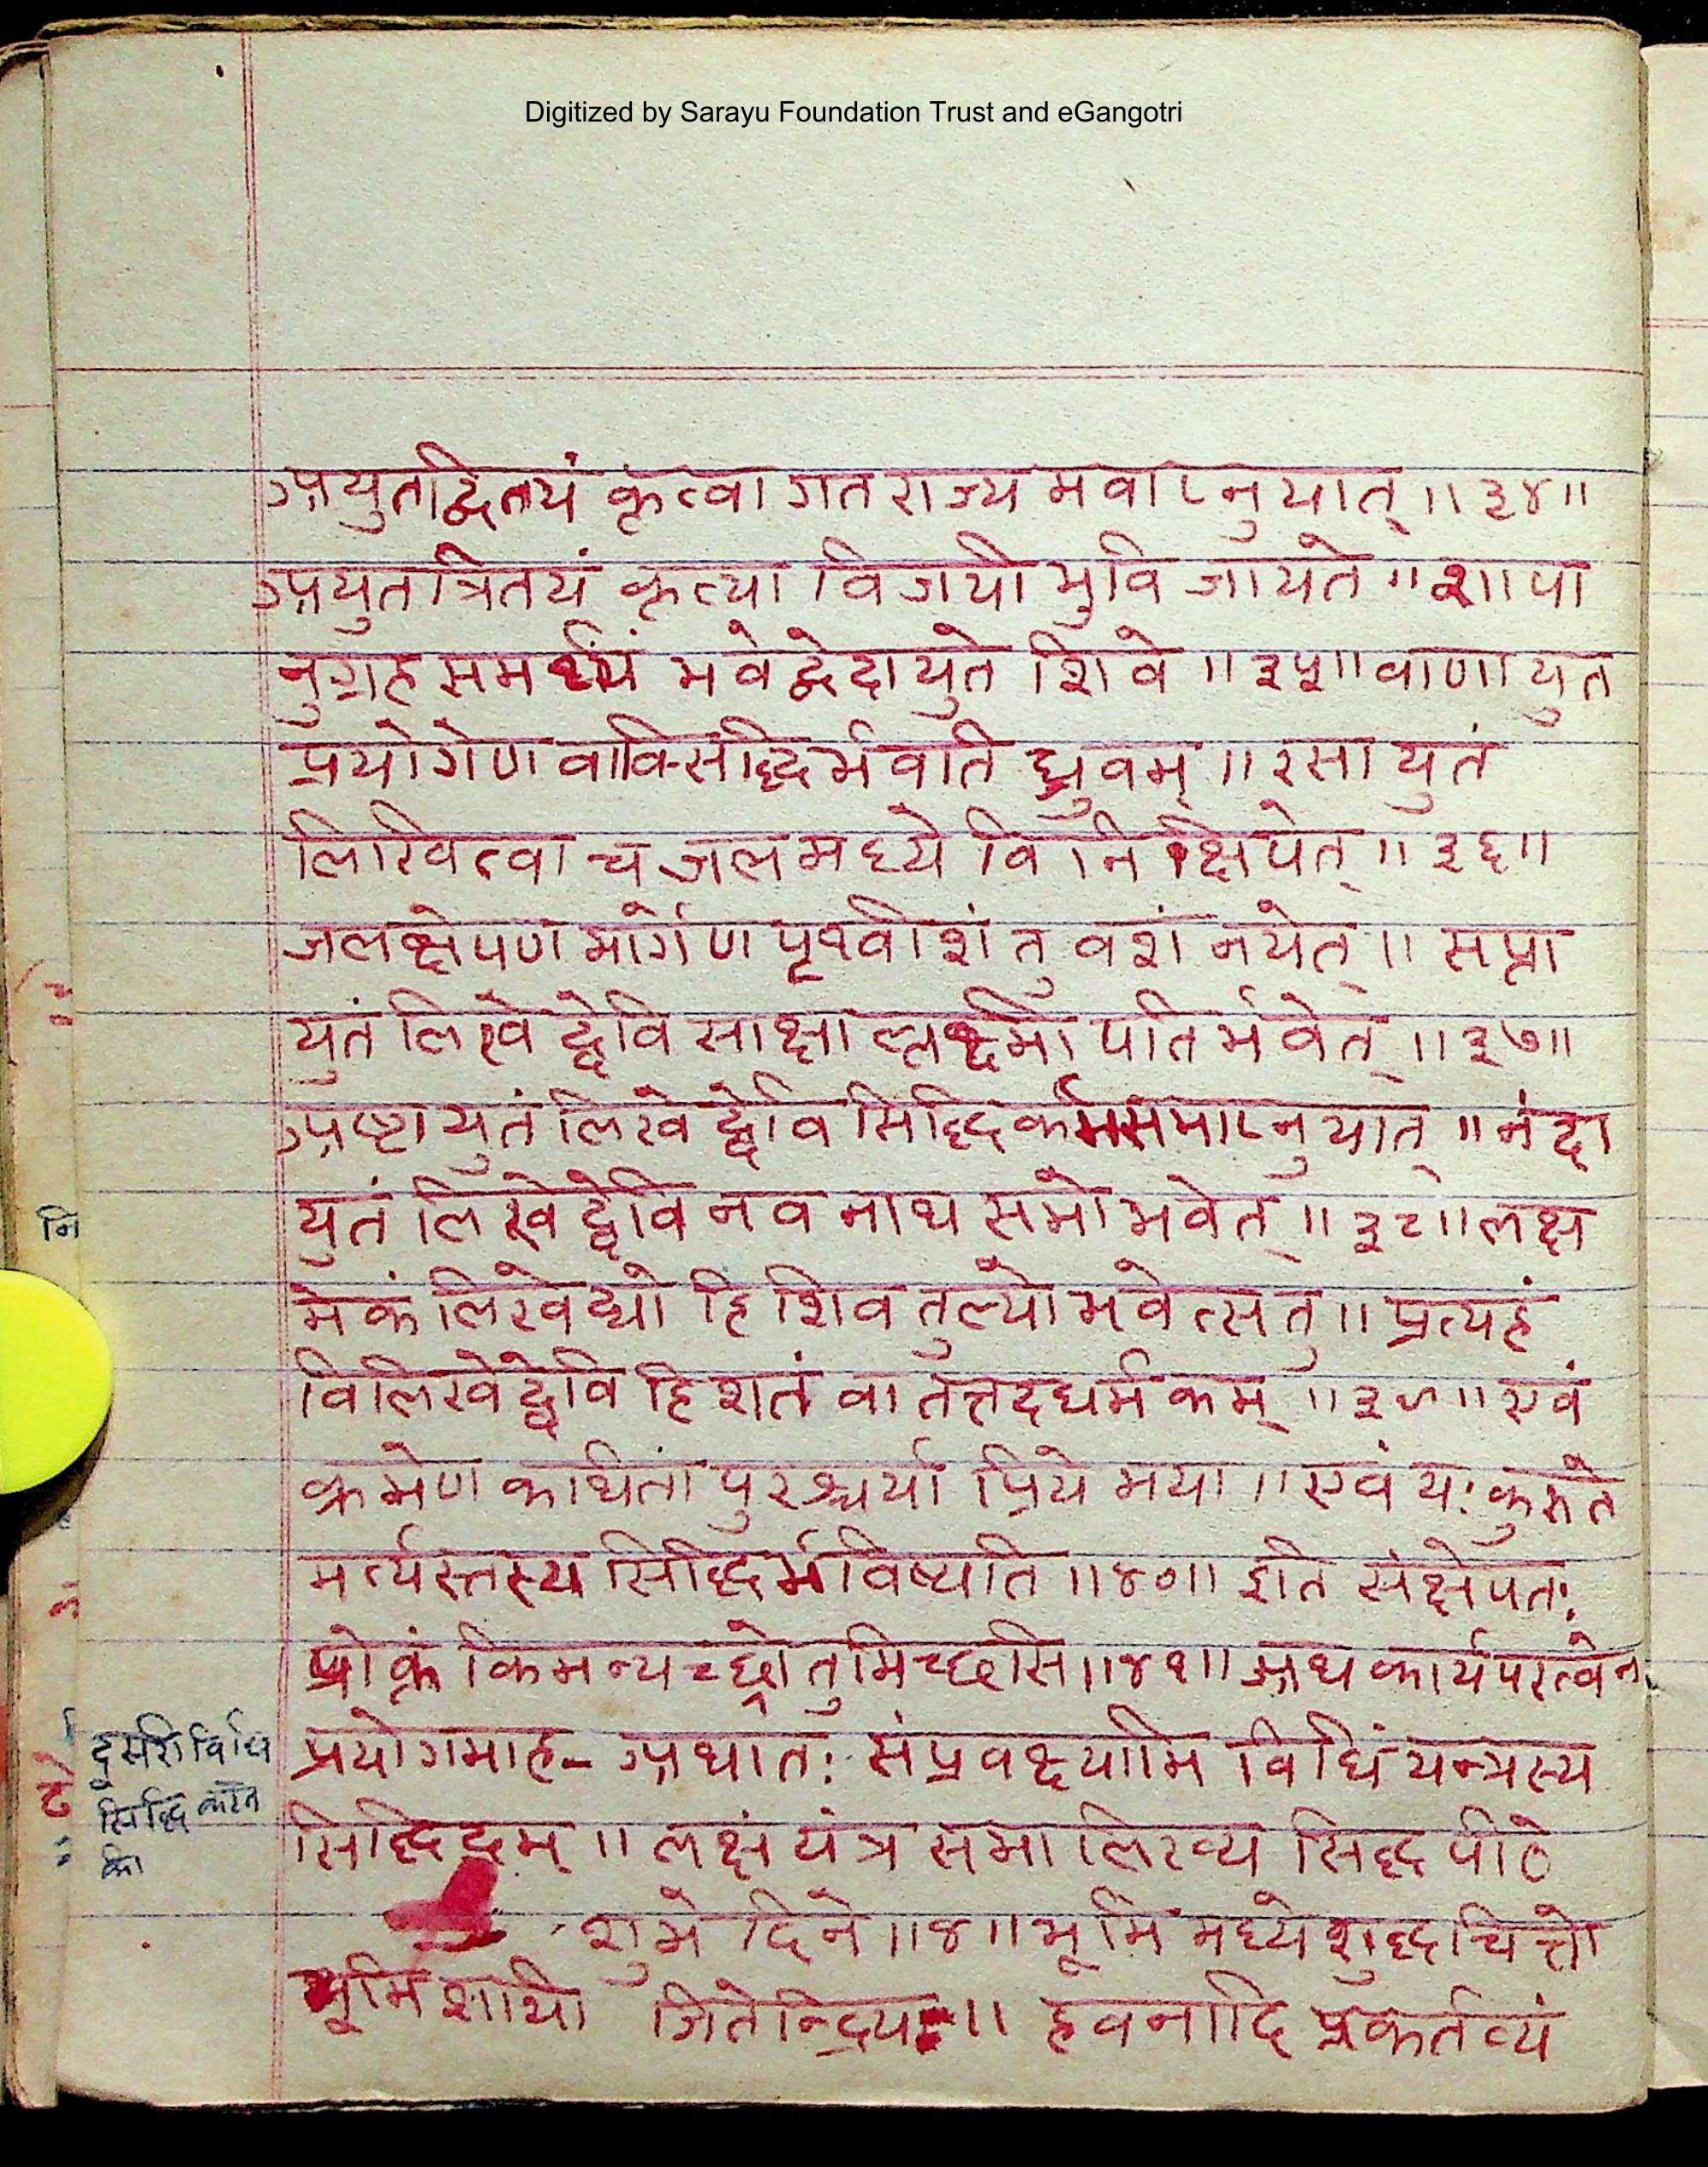 Digitized by Sarayu Foundation Trust and eGangotri
अयुतद्वितयं कृत्वा गतराज्यमवाप्नुयात् ॥३४॥
अयुतत्रितयं कृत्वा विजयी भुवि जायते ॥ शापा
नुग्रहसमर्थ्यं भवेद्वेदायुते शिवे ॥३५॥ वाणायुत
प्रयोगेण वाक्सिद्धिर्भवति ध्रुवम् ॥ रसायुतं
लिखित्वा च जलमध्ये विनिक्षिपेत् ॥३६॥
जलक्षेपणमार्गेण पृथ्वीशं तु वशं नयेत् ॥ सप्ता
युतं लिखेद्देवि साक्षाल्लक्ष्मीपतिर्भवेत् ॥३७॥
अष्टायुतं लिखेद्देवि सिद्धिकर्मसमाप्नुयात् ॥ नंदा
युतं लिखेद्देवि नवनाथसमो भवेत् ॥३८॥ लक्ष
मेकं लिखेद्यो हि शिवतुल्यो भवेत्स तु ॥ प्रत्यहं
विलिखेद्देवि द्विशतं वा तत्तदर्धमकम् ॥३९॥ एवं
क्रमेण कथिता पुरश्चर्या प्रिये मया ॥ एवं यः कुरुते
मर्त्यस्तस्य सिद्धिर्भविष्यति ॥४०॥ इति संक्षेपतः
प्रोक्तं किमन्यच्छ्रोतुमिच्छसि ॥४१॥ अथ कार्यपरत्वेन
प्रयोगमाह- अथातः संप्रवक्ष्यामि विधिं यन्त्रस्य
सिद्धिदम् ॥ लक्षं यंत्र समालिख्य सिद्धपीठे
शुभे दिने ॥४॥ भूमिमध्ये शुद्धचित्तो
भूमिशायी जितेन्द्रियः ॥ हवनादि प्रकर्तव्यं
नि
दूसरी विधि
सिद्धि करने
की